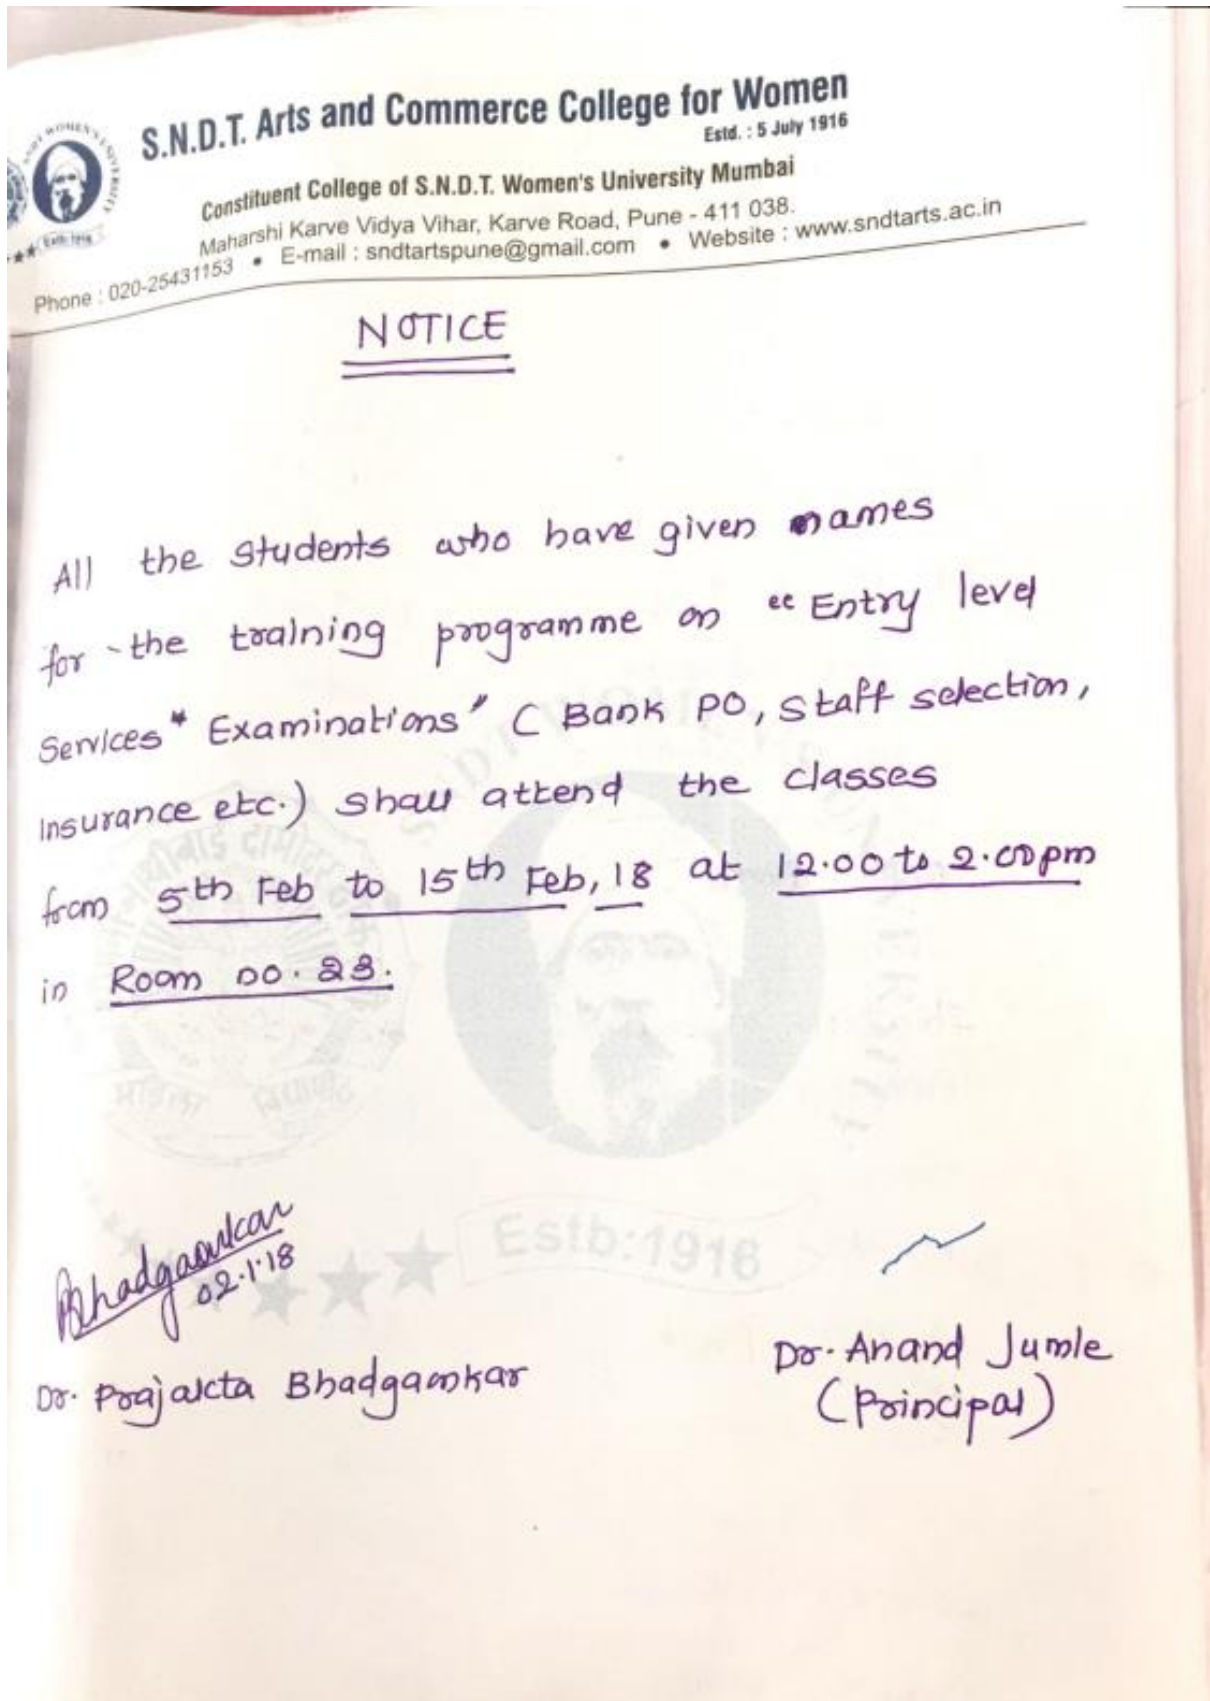 S.N.D.T. Arts and Commerce College for Women
Estd. : 5 July 1916
Constituent College of S.N.D.T. Women's University Mumbai
Maharshi Karve Vidya Vihar, Karve Road, Pune - 411 038.
Phone : 020-25431153 • E-mail : sndtartspune@gmail.com • Website : www.sndtarts.ac.in
NOTICE
All the students who have given names
for the training programme on "Entry level
Services" Examinations" ( Bank PO, Staff selection,
Insurance etc.) shall attend the classes
from 5th Feb to 15th Feb, 18 at 12.00 to 2.00pm
in Room no. 23.
Estb:1916
Bhadgaonkar
02.1.18
Dr. Prajakta Bhadgaonkar
Dr. Anand Jumle
(Principal)